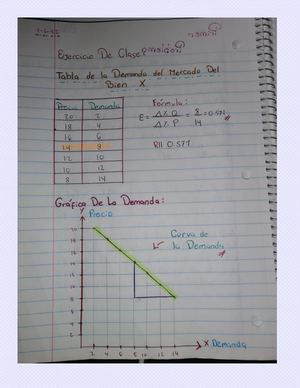 Ejercicio De Clase
Tabla de la Demanda del Mercado Del
Bien X
Precio Demanda
20 2
18 4
16 6
14 8
12 10
10 12
8 14
Fórmula:
E = Δ%Q = 8 = 0.571
Δ%P 14
R// 0.577
Gráfica De La Demanda:
Y Precio
20
18
16
14
12
10
8
6
4
2
Curva de
la Demanda
2 4 6 8 10 12 14
X Demanda